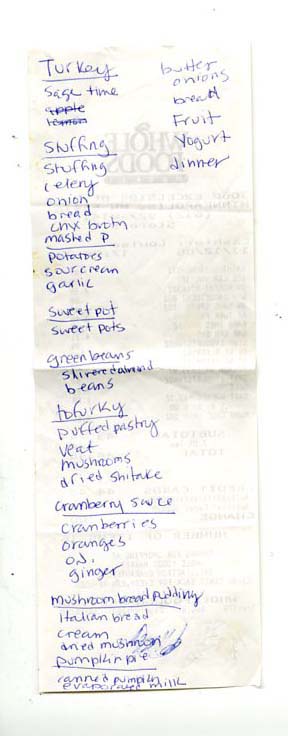 Turkey
Sage time
apple
lemon
Stuffing
Stuffing
celery
onion
bread
chx broth
mashed P
potatoes
sour cream
garlic
sweet pot
sweet pots
green beans
slivered almond
beans
tofurky
puffed pastry
veat
mushrooms
dried shitake
cranberry sauce
cranberries
oranges
O.J.
ginger
mushroom bread pudding
Italian bread
cream
dried mushroom
pumpkin pie
canned pumpkin
evaporated milk
butter
onions
bread
Fruit
Yogurt
dinner
WHOLE
FOODS